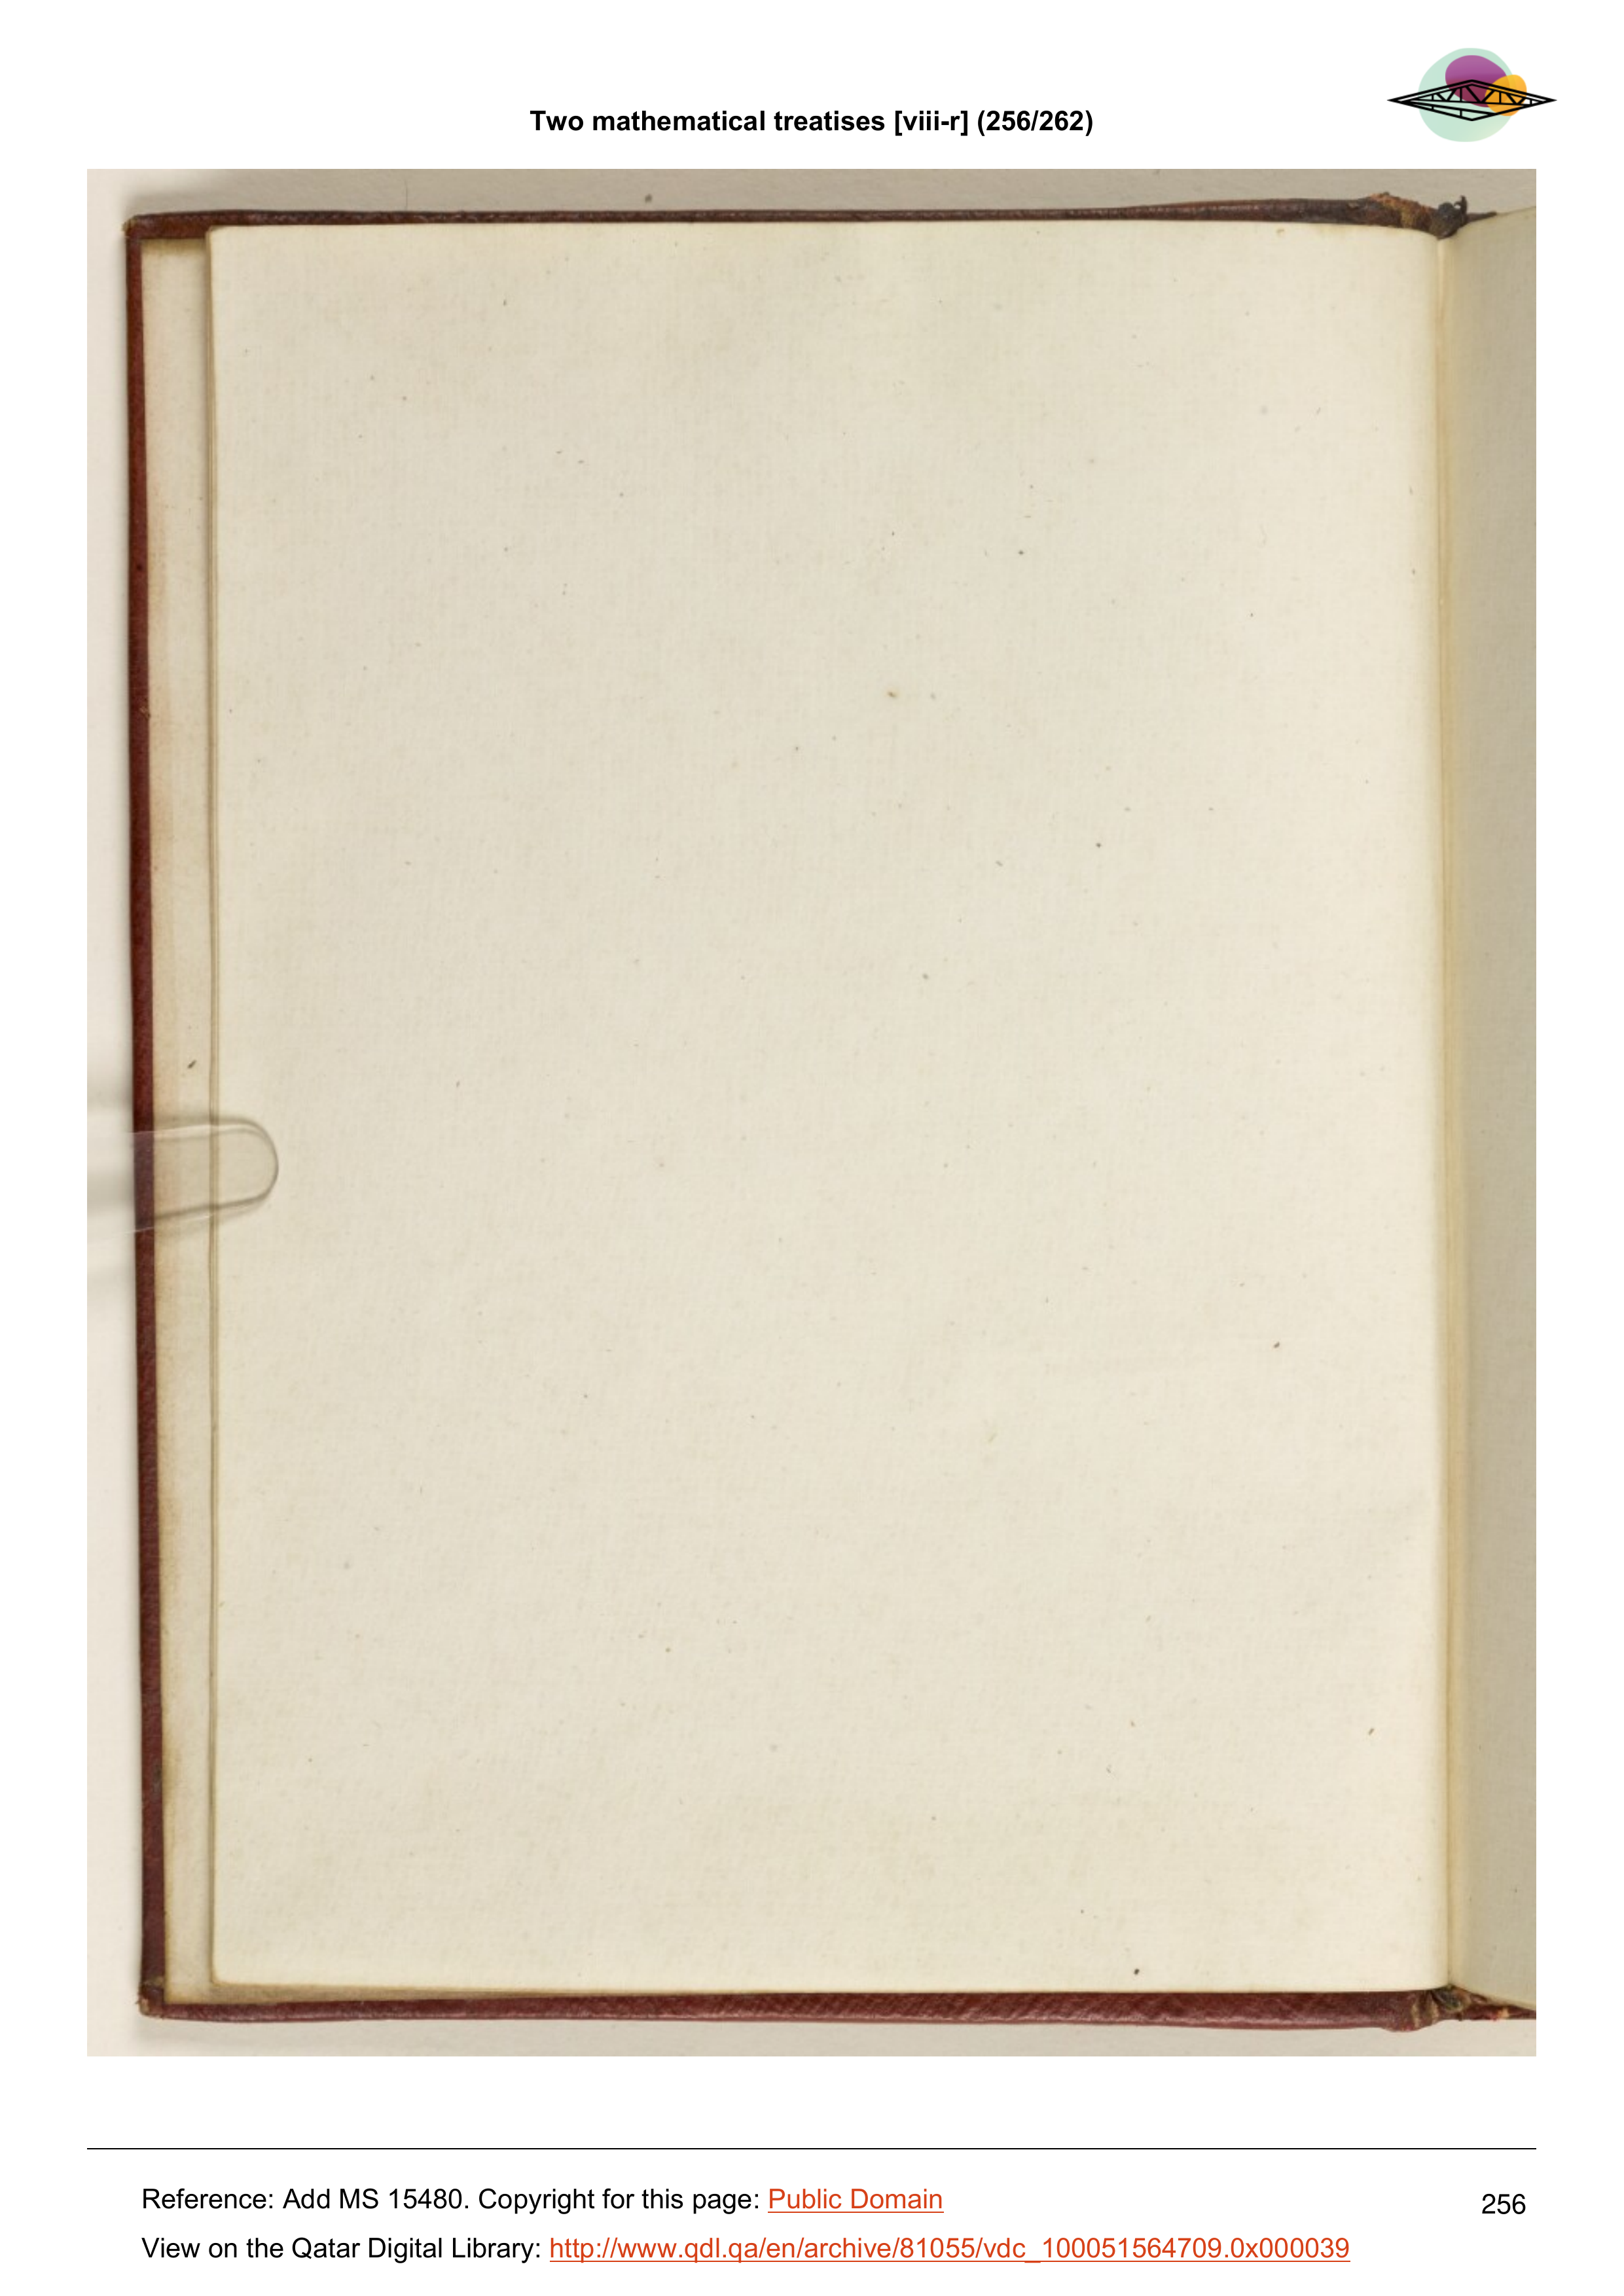 Two mathematical treatises [viii-r] (256/262)
Reference: Add MS 15480. Copyright for this page: Public Domain
256
View on the Qatar Digital Library: http://www.qdl.qa/en/archive/81055/vdc_100051564709.0x000039